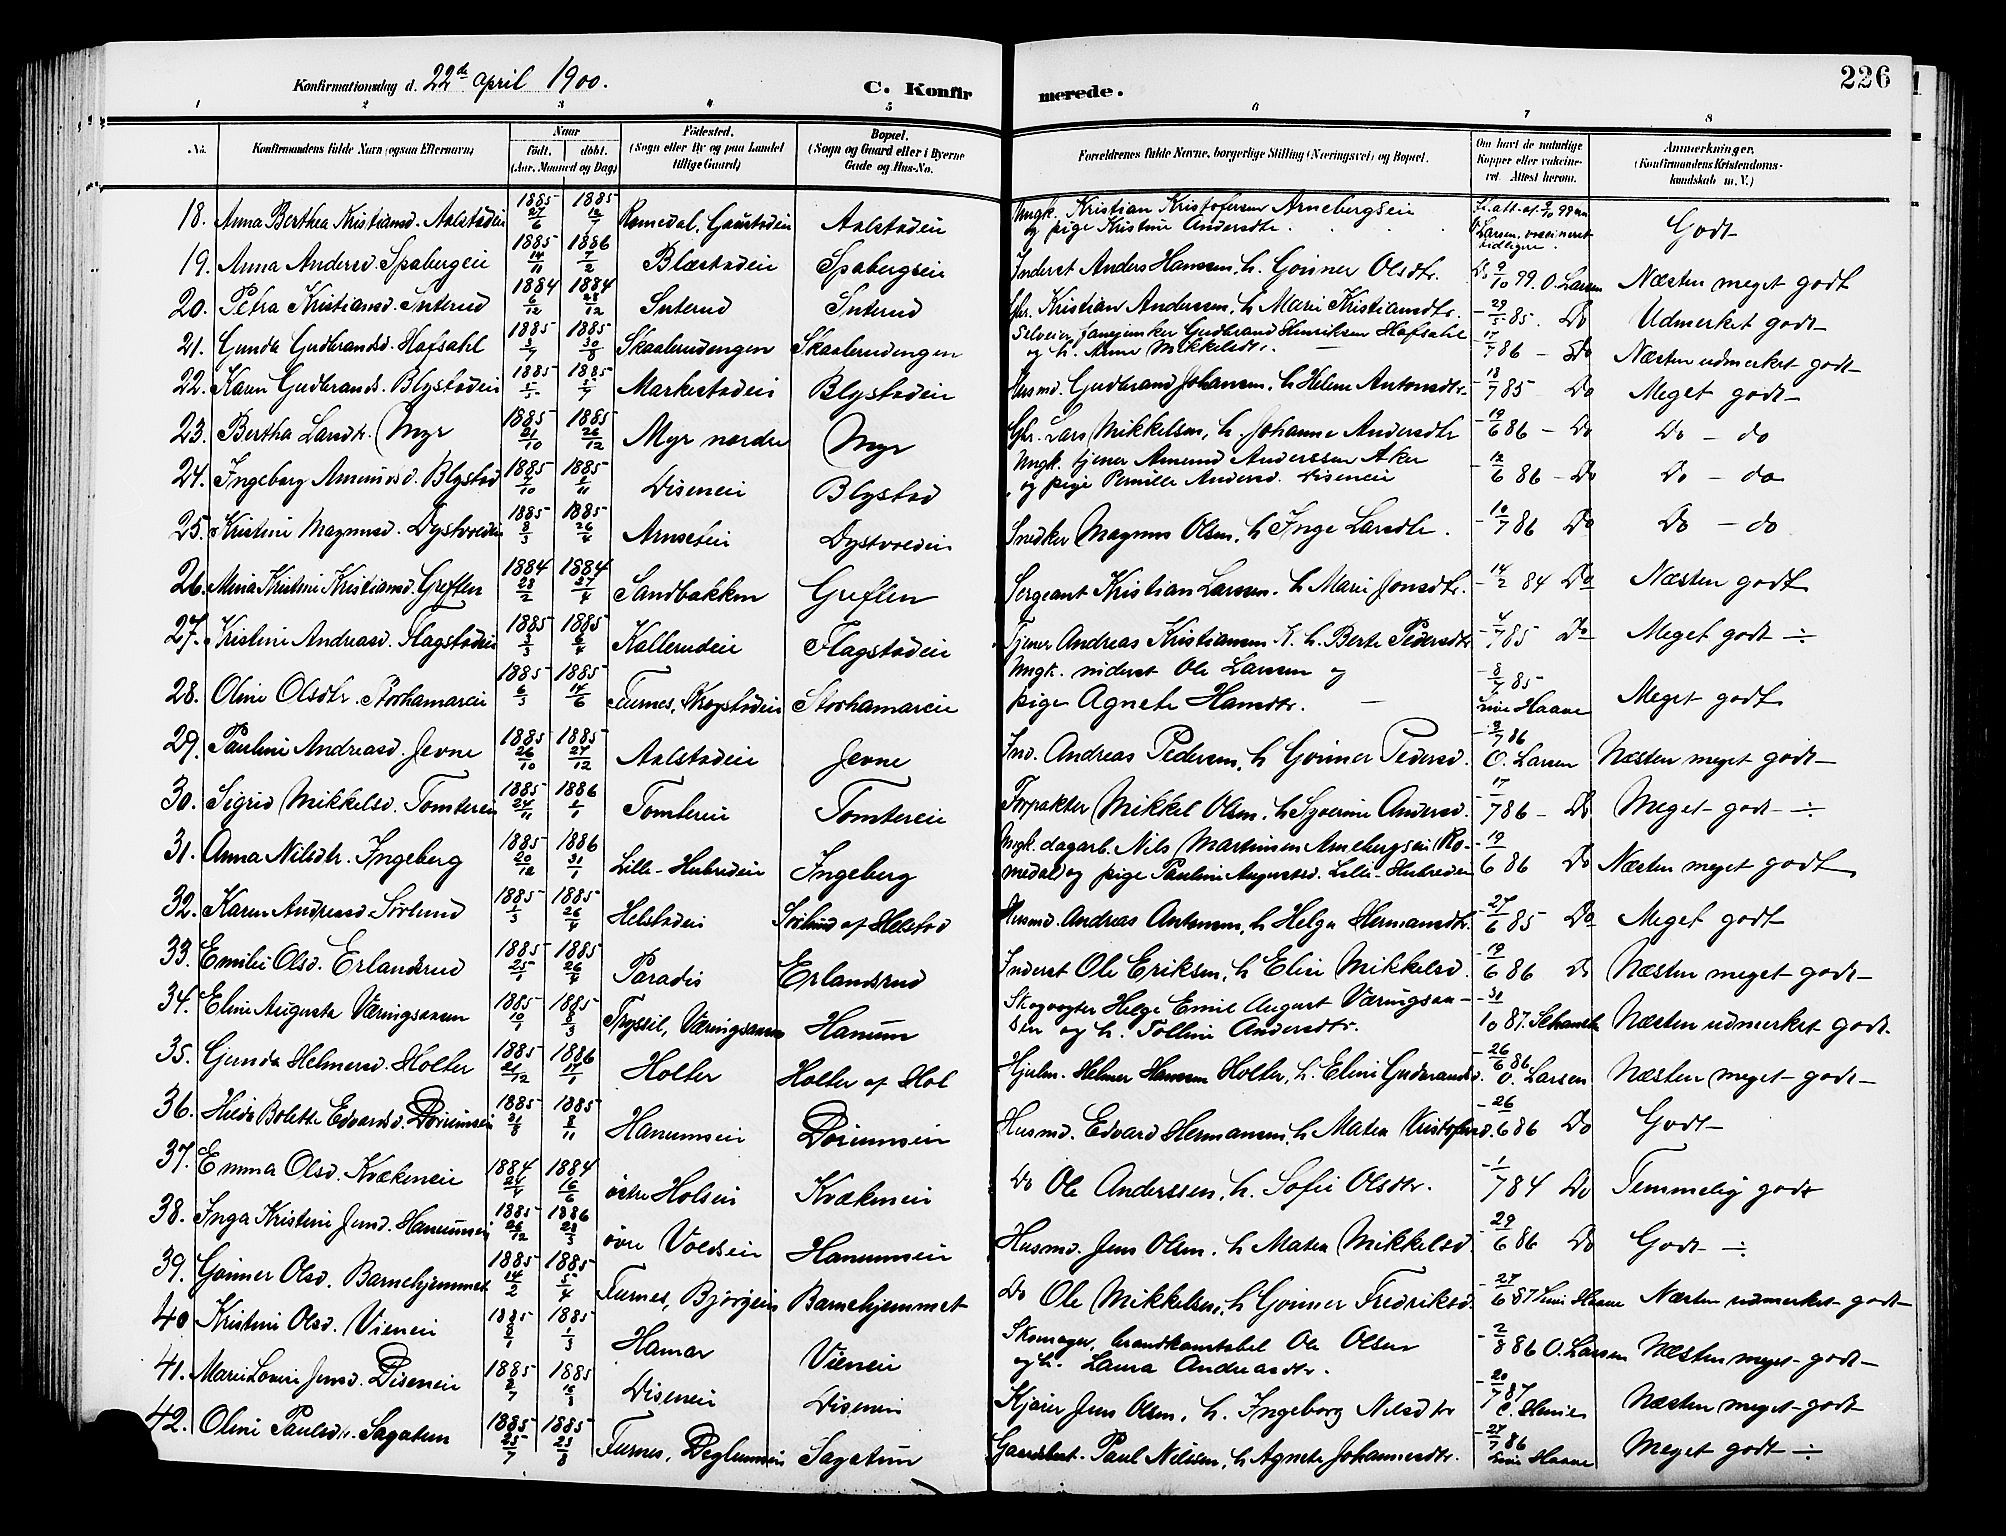 226
Konfirmationsdag d. 22de april 1900.
C. Konfirmerede.
1 2 3 4 5 6 7 8
No.
Konfirmandens fulde Navn (ogsaa Efternavn)
Naar
født, døbt.
(Aar, Maaned og Dag)
Fødested.
(Sogn eller By og paa Landet tillige Gaard)
Bopæl.
(Sogn og Gaard eller i Byerne Gade og Hus-No.
Forældrenes fulde Navne, borgerlige Stilling (Næringsvei) og Bopæl.
Om havt de naturlige Kopper eller vakcineret. Attest herom.
Anmerkninger.
(Konfirmandens Kristendomskundskab m. V.)
18. Anna Berthea Kristiansd. Aalstadeie 1885 27/6 1885 12/7 Romedal, Gaustadeie Aalstadeie Ungk. Kristian Kristofersen Arnebergseie og pige Kristine Andersdtr. 9/10 99 O. Larsen, vaccineret tidligere. Godt
19. Anna Andersd. Spabergeie 1885 14/11 1886 7/2 Blæstadeie Spabergeie Inderst Anders Hansen, h. Gonner Olsdtr. Do 9/10 99. O. Larsen Næsten meget godt
20. Petra Kristiansd. Interud 1884 6/12 1884 28/12 Interud Interud Gbr. Kristian Andersen, h Marie Kristiansdtr. - 29/5 85. Do Udmerket godt -
21. Gunda Gudbrandsd. Hafsahl 1885 8/7 1885 30/8 Skaalerudengen Skaalerudengen Selveier, Gudbrand Henriksen Hafsahl og h. Anne Mikkelsdtr. 17/7 86 - Do Næsten udmerket godt -
22. Karen Gudbrands. Blystadeie 1885 1/5 1885 5/7 Markestadeie Blystadeie Husmd. Gudbrand Johansen, h Helene Antonsdtr - 18/7 85 Do Meget godt -
23. Bertha Larsdtr. Myr 1885 21/10 1885 26/12 Myr nordre Myr Gbr. Lars Mikkelsen, h. Johanne Andersdtr - 19/6 86 - Do Do - do
24. Ingeborg Amundsd. Blystad 1885 7/10 1885 8/11 Diseneie Blystad Ungk. tjener Amund Anderssen Aker og pige Pernille Andersd. Diseneie - 12/6 86 - Do Do - do
25. Kristine Magnusd. Dystvoldeie 1885 8/3 1885 26/4 Arnseteie Dystvoldeie Snedker Magnus Olsen, h Inge Larsdtr. - 10/7 86 Do Do - do
26. Mina Kristine Kristiansd. Greften 1884 28/2 1884 27/4 Sandbakken Greften Sergeant Kristian Larsen, h Marie Jonsdtr. - 14/2 84 Do Næsten godt
27. Kristine Andreasd. Flagstadeie 1885 3/3 1885 6/4 Kallerudeie Flagstadeie Tjener Andreas Kristiansen K. h. Berte Pedersdtr - 4/7 85 Do Meget godt ÷
28. Oline Olsdtr. Storhamareie 1885 6/3 1885 14/6 Furnes, Skogstadeie Storhamareie Ungk. inderst Ole Larsen og pige Agnete Hansdtr. - 8/7 85 Sine Haave Meget godt
29. Pauline Andreasd. Jevne 1885 26/10 1885 27/12 Aalstadeie Jevne Ind. Andreas Pedersen, h Gonner Pedersd. - 3/7 86 O. Larsen Næsten meget godt -
30. Sigrid Mikkelsd. Tomtereie 1885 24/11 1886 1/1 Tomtereie Tomtereie Forpakter Mikkel Olsen, h Syverine Andersd. - 17/7 86 - Do Meget godt ÷
31. Anna Nilsdtr. Ingeberg 1885 20/12 1886 31/1 Lille-Hubredeie Ingeberg Ungk. dagarb. Nils Martinsen Arnebergseie Romedal og pige Pauline Augustsd. Lille-Hubredeie - 19/6 86 Do Næsten meget godt
32. Karen Andreasd Sørlund 1885 1/3 1885 26/4 Helstadeie Sørlund af Helstad Husmd. Andreas Antonsen, h Helga Hermansdtr. - 27/6 85 Do Meget godt
33. Emilie Olsd. Erlandsrud 1885 25/1 1885 26/4 Paradis Erlandsrud Inderst Ole Eriksen, h Eline Mikkelsd. - 19/6 86 Do Næsten meget godt -
34. Eline Augusta Væringsaasen 1885 10/1 1885 8/3 Trysil, Væringsaasen Hanum Skogvogter Helge Emil August Væringsaasen og h. Tolline Andersdtr. - 31/10 87. Næsten udmerket godt.
35. Gunda Helmersd. Holter 1885 21/12 1886 17/1 Holter Holter af Hol Hjulm. Helmer Hansen Holter, h. Eline Gudbrandsd. - 26/6 86 O. Larsen Næsten meget godt -
36. Hilda Bolette Edvardsd. Dørumseie 1885 31/8 1885 8/11 Hanumseie Dørumseie Husmd. Edvard Hermansen, h Matea Kristofersd. - 26/6 86 Do Godt -
37. Emma Olsd. Kvækeneie 1884 24/4 1884 16/6 østre Holseie Kvækeneie Do Ole Anderssen, h. Sofie Olsdtr. - 1/7 84 Do Temmelig godt
38. Inga Kristine Jensd. Hanumseie 1885 26/12 1886 28/3 øvre Voldseie Hanumseie Husmd. Jens Olsen, h Matea Mikkelsd. - 29/6 86 Do Godt ÷
39. Gonner Olsd. Barnehjemmet 1885 14/2 1885 5/4 Furnes, Bjørgeie Barnehjemmet Do Ole Mikkelsen, h Gonner Fredriksd. - 27/6 87 Sine Haave Næsten udmerket godt -
40 Kristine Olsd. Vieneie 1885 8/1 1885 1/3 Hamar Vieneie Skomager, brandkonstabel Ole Olsen og h. Laura Andreasdtr. - 2/8 86 O. Larsen Næsten meget godt -
41. Marie Lovise Jensd. Diseneie 1885 8/7 1885 16/8 Diseneie Diseneie Kjører Jens Olsen, h. Ingeborg Nilsdtr - 20/7 87 Næsten meget godt
42. Oline Paulsdtr. Sagatun 1885 25/7 1885 23/8 Furnes, Deglumseie Sagatun Gaardbest. Paul Nilssen, h Agnete Johannesdtr. - 27/7 86 Sine Haave Meget godt ÷